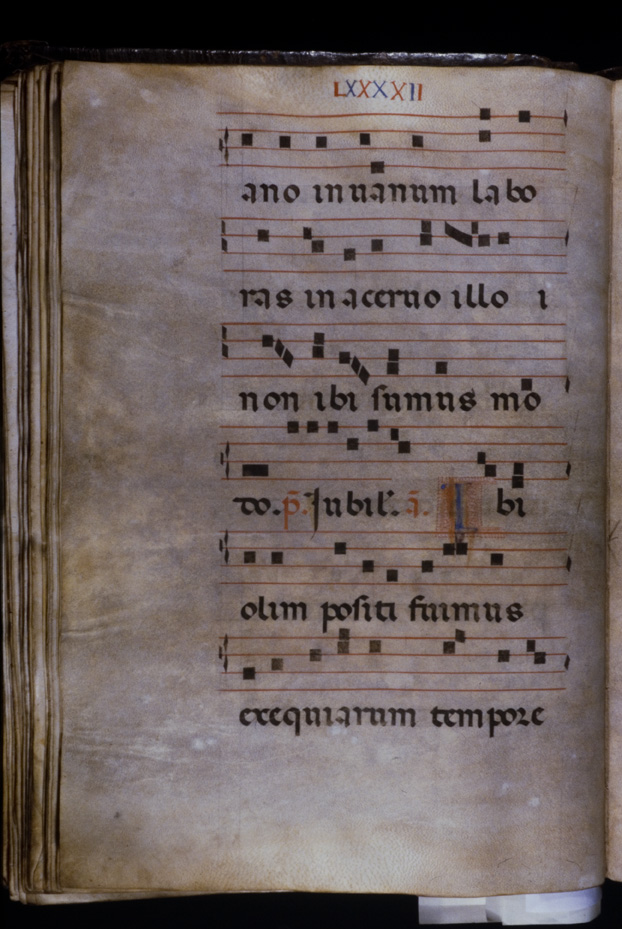 LXXXXII
ano inuanum labo
ras in aceruo illo i
non ibi sumus mo
do. p̄. Jubil'. ā. I bi
olim positi fuimus
exequiarum tempore